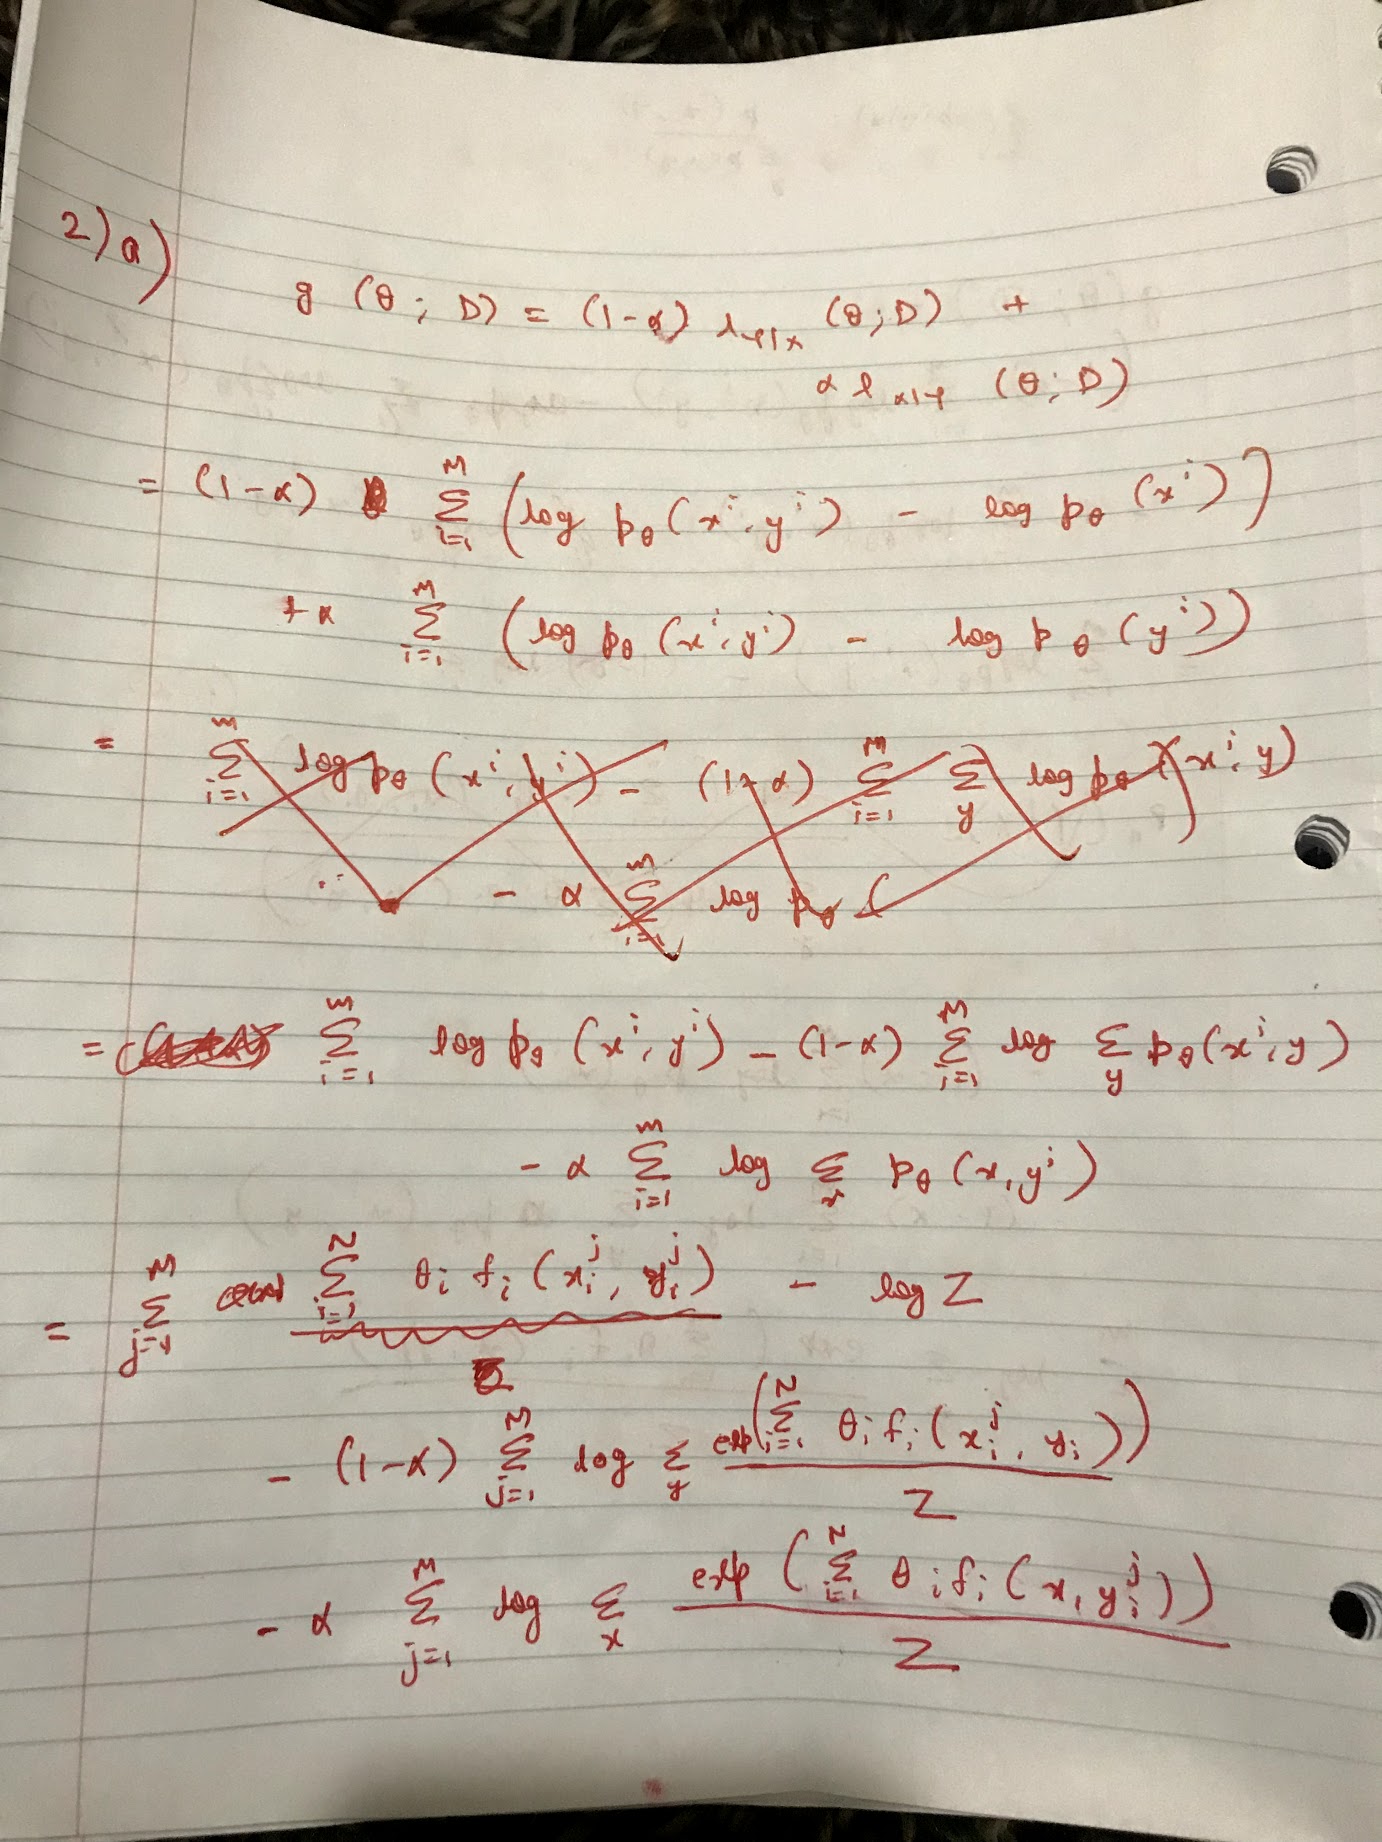 2) a)
g (θ ; D) = (1-α) l_{Y|X} (θ; D) +
α l_{X|Y} (θ; D)
= (1-α) Σ_{i=1}^{M} (log p_θ (x^i, y^i) - log p_θ (x^i))
+ α Σ_{i=1}^{M} (log p_θ (x^i, y^i) - log p_θ (y^i))
= Σ_{i=1}^{m} log p_θ (x^i, y^i) - (1-α) Σ_{i=1}^{M} Σ_y log p_θ (x^i, y)
- α Σ_{i=1}^{m} log p_θ (
= Σ_{i=1}^{m} log p_θ (x^i, y^i) - (1-α) Σ_{i=1}^{M} log Σ_y p_θ (x^i, y)
- α Σ_{i=1}^{m} log Σ_x p_θ (x, y^i)
= Σ_{j=1}^{M} Σ_{i=1}^{N} θ_i f_i (x_i^j, y_i^j) - log Z
- (1-α) Σ_{j=1}^{M} log Σ_y exp(Σ_{i=1}^{N} θ_i f_i (x_i^j, y_i)) / Z
- α Σ_{j=1}^{M} log Σ_x exp (Σ_{i=1}^{N} θ_i f_i (x, y_i^j)) / Z